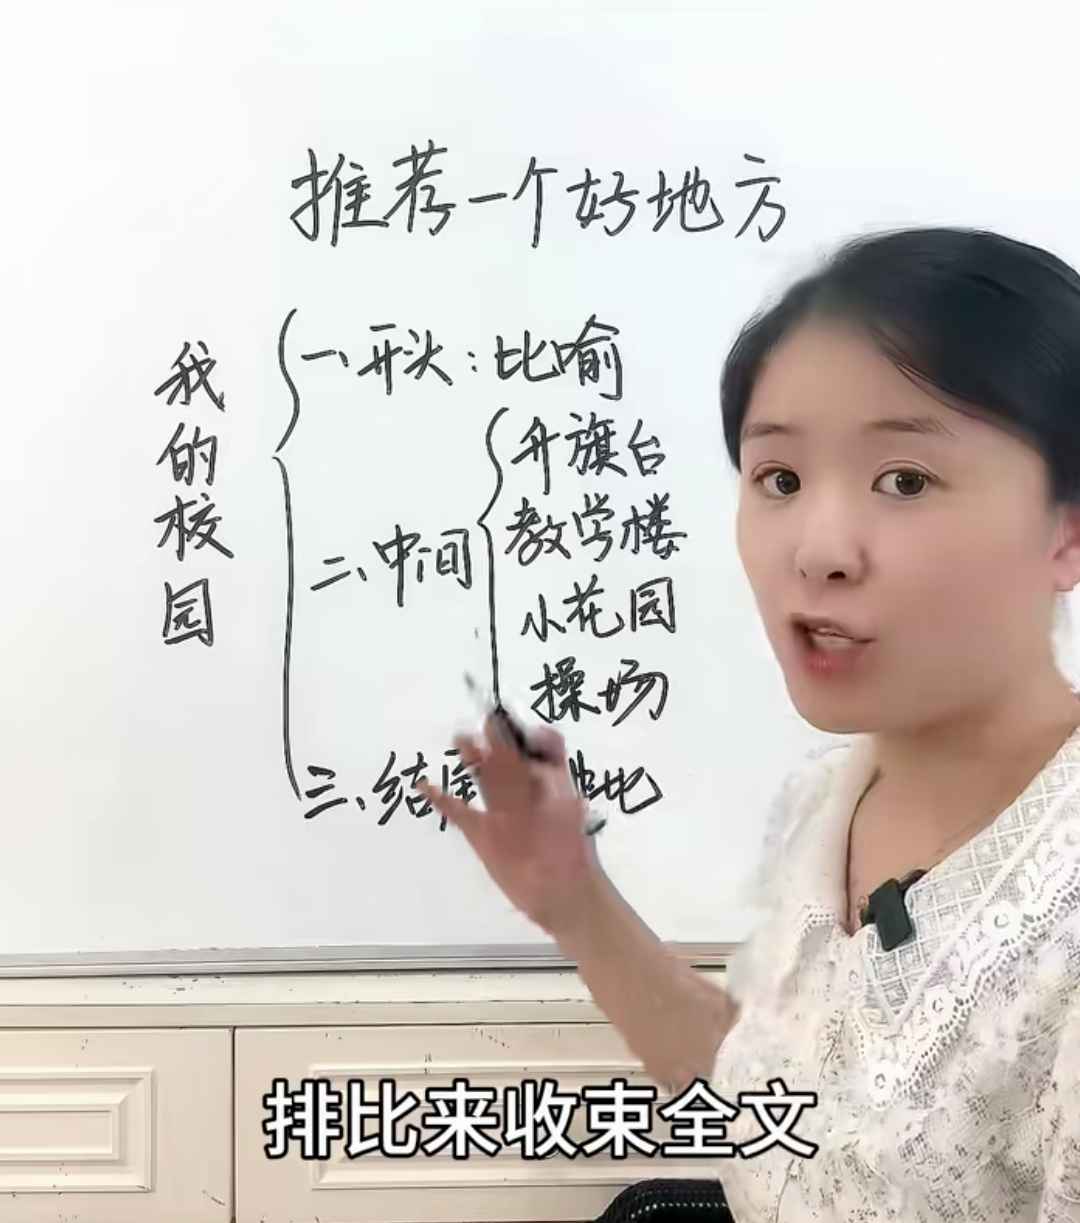 推荐一个好地方
我的校园
一、开头：比喻
二、中间
升旗台
教学楼
小花园
操场
三、结尾
排比来收束全文